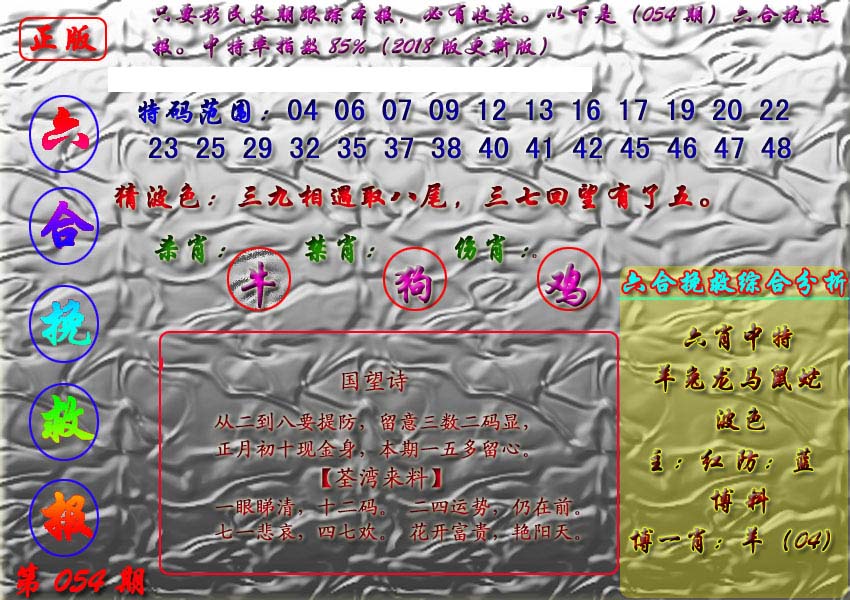 正版
只要彩民长期跟踪本报，必有收获。以下是（054期）六合挽救
报。中特率指数85%（2018版更新版）
六
合
挽
救
报
第054期
特码范围：04 06 07 09 12 13 16 17 19 20 22
23 25 29 32 35 37 38 40 41 42 45 46 47 48
猜波色：三九相遇取八尾，三七回望有了五。
杀肖：牛 禁肖：狗 伤肖：鸡。
国望诗
从二到八要提防，留意三数二码显，
正月初十现金身，本期一五多留心。
【荃湾来料】
一眼睇清，十二码。 二四运势，仍在前。
七一悲哀，四七欢。 花开富贵，艳阳天。
六合挽救综合分析
六肖中特
羊兔龙马鼠蛇
波色
主：红防：蓝
博料
博一肖：羊（04）